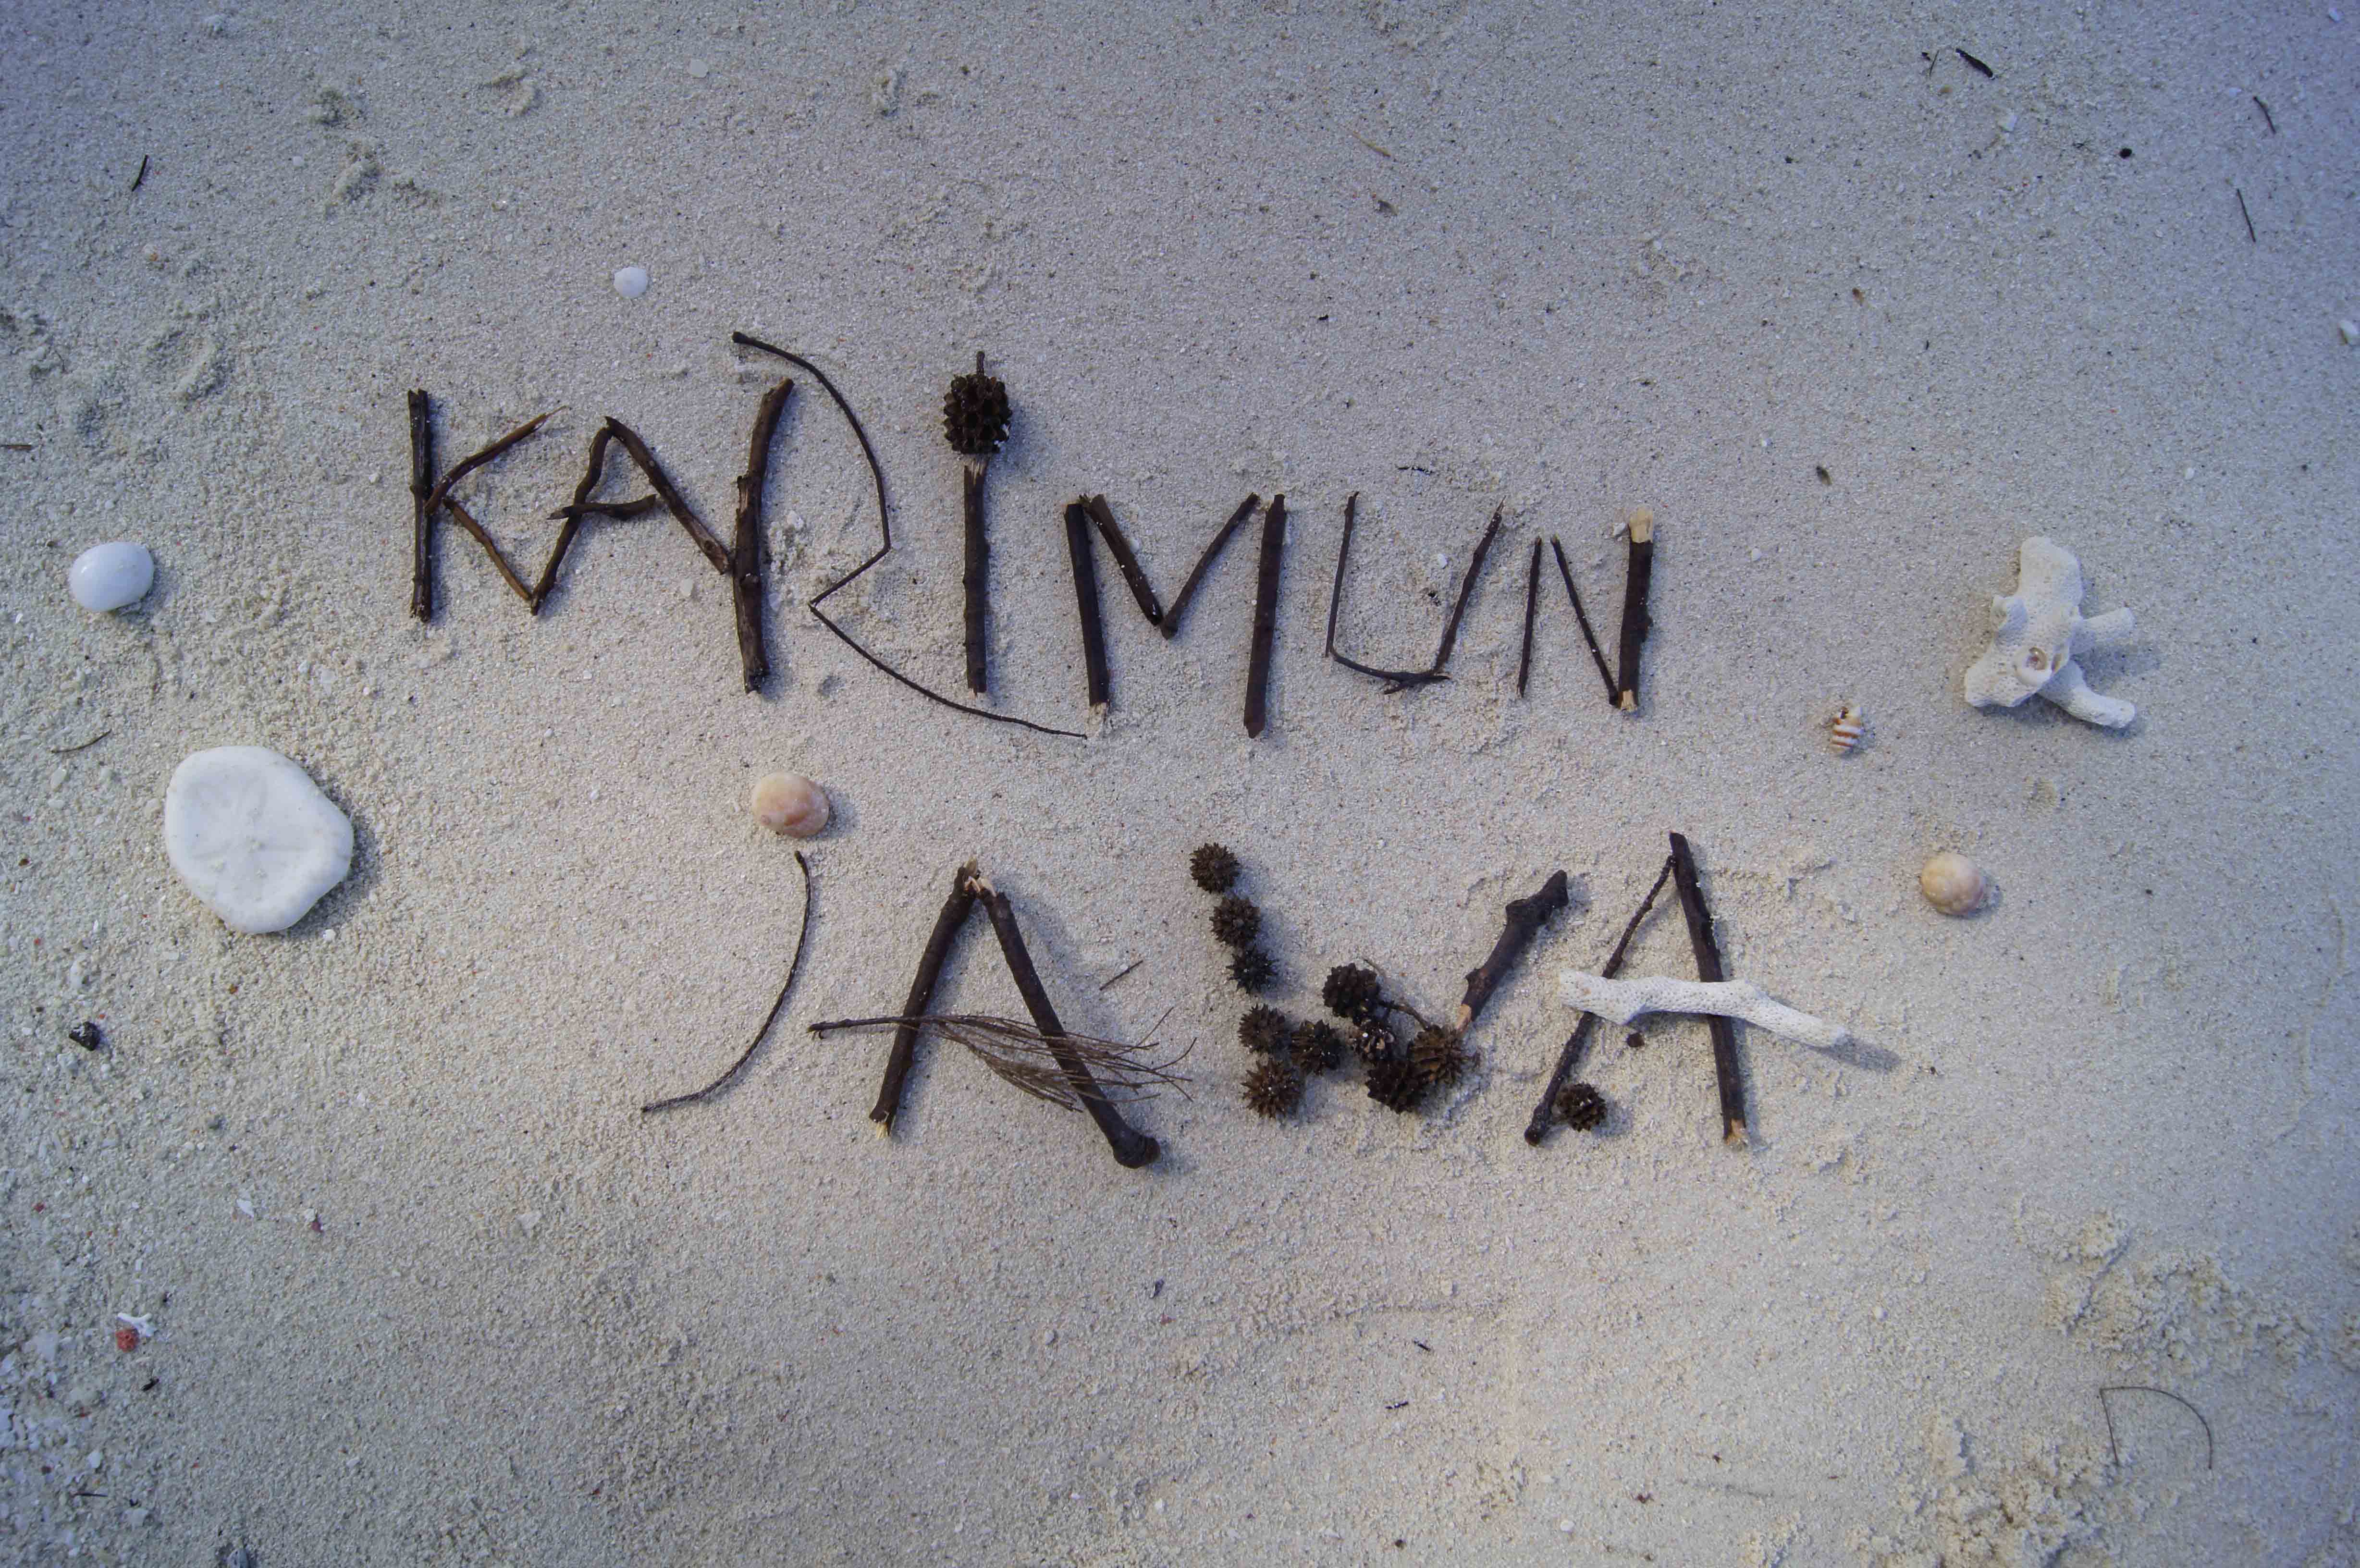 KARIMUN
JAWA